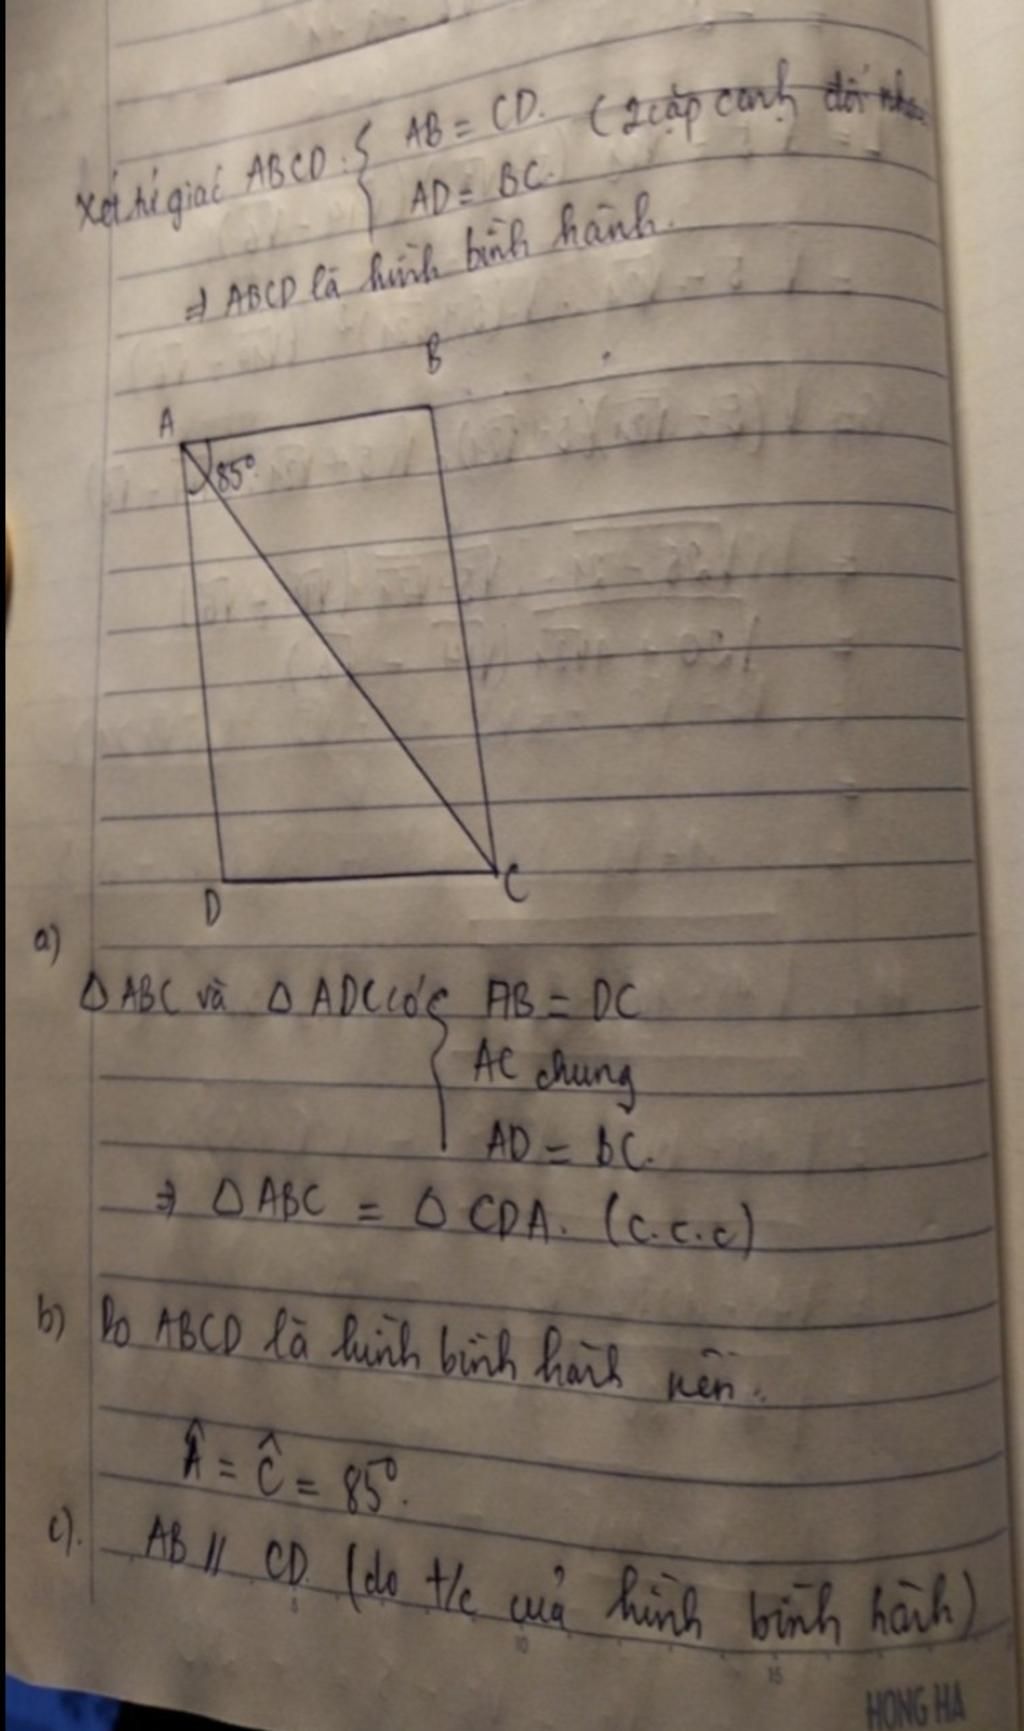 Xét tứ giác ABCD: { AB = CD. (2 cặp cạnh đối nhau
AD = BC.
⇒ ABCD là hình bình hành.
B
A
85°
D
C
a)
Δ ABC và Δ ADC có { AB = DC
AC chung
AD = BC.
⇒ Δ ABC = Δ CDA. (c.c.c)
b) Do ABCD là hình bình hành nên:
Â = Ĉ = 85°.
c). AB // CD (do t/c của hình bình hành)
10
15
HONG HA